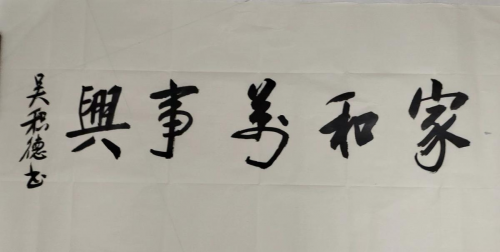 家和萬事興
吴积德书